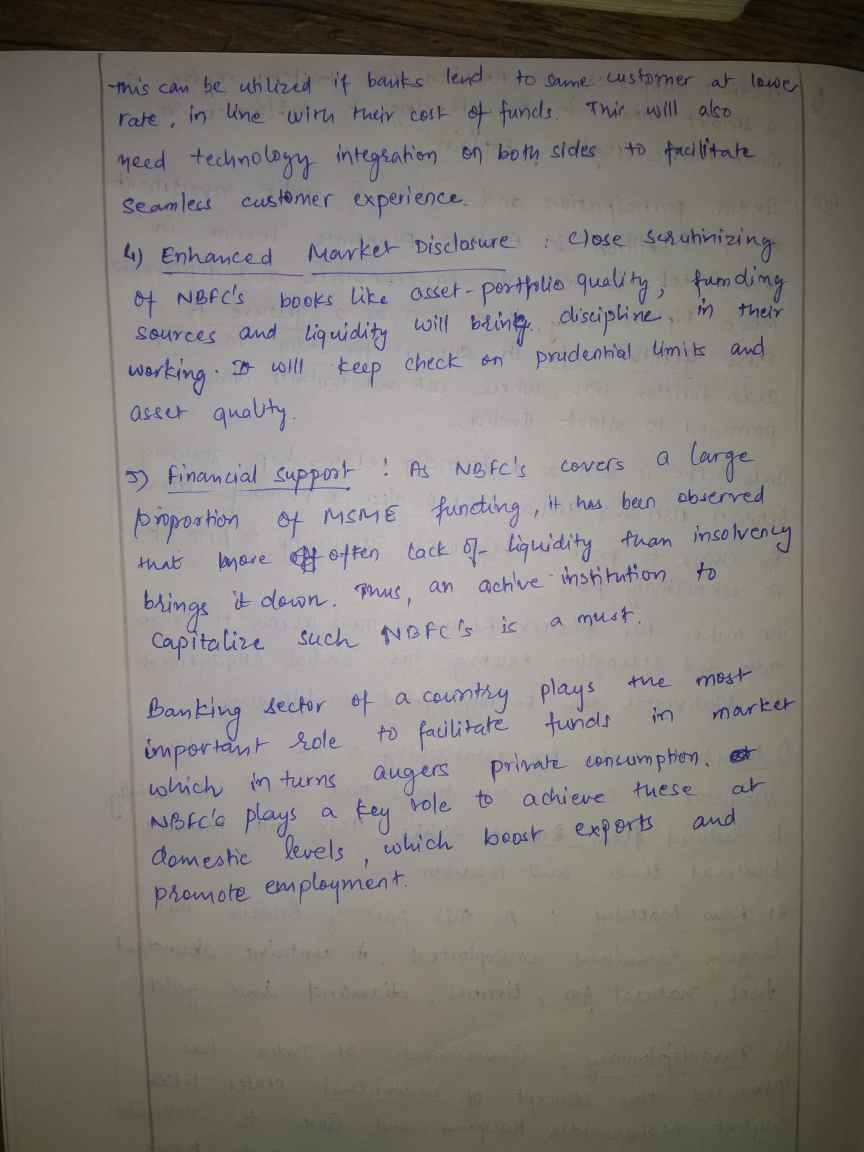 this can be utilized if banks lend to same customer at lower
rate, in line with their cost of funds. This will also
need technology integration on both sides to facilitate
seamless customer experience.
4) Enhanced Market Disclosure : Close scrutinizing
of NBFC's books like asset-portfolio quality, funding
sources and liquidity will bring discipline in their
working. It will keep check on prudential limits and
asset quality.
5) Financial support : As NBFC's covers a large
proportion of MSME functing, it has been observed
that more often lack of liquidity than insolvency
brings it down. Thus, an active institution to
capitalize such NBFC's is a must.
Banking sector of a country plays the most
important role to facilitate funds in market
which in turns augers private consumption.
NBFC's plays a key role to achieve these at
domestic levels, which boost exports and
promote employment.